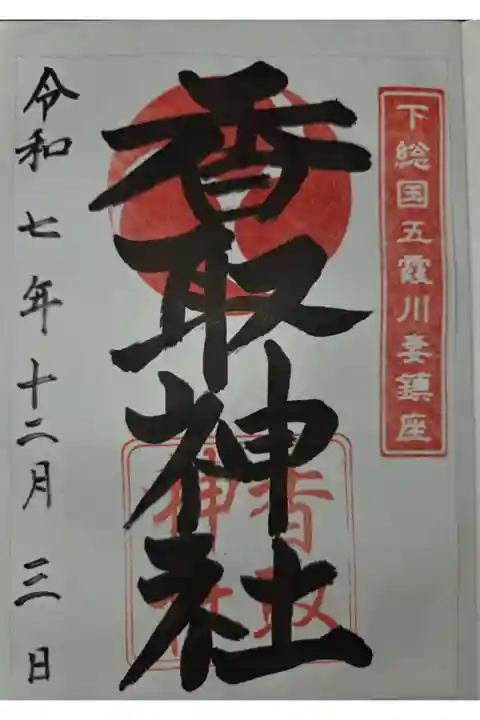 下総国五霞川妻鎮座
香取神社
香取
神社
令和七年十二月三日